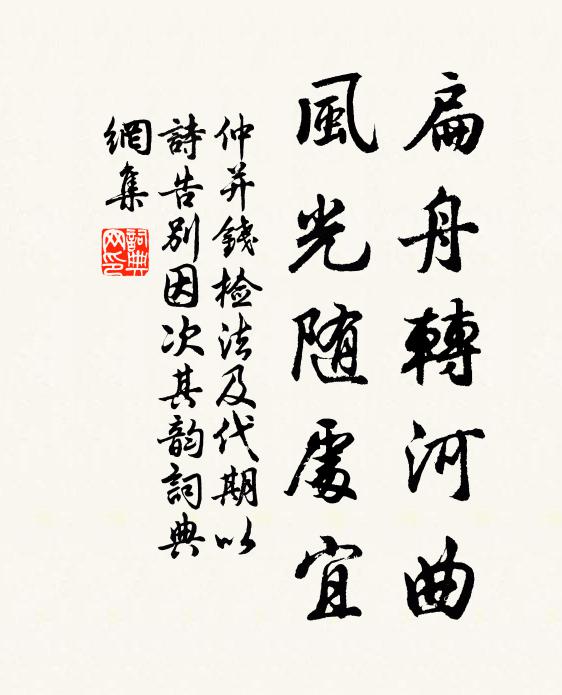 扁舟轉河曲
風光随處宜
仲并錢検法及代期以
詩告別因次其韵詞典
網集
詞典
网印